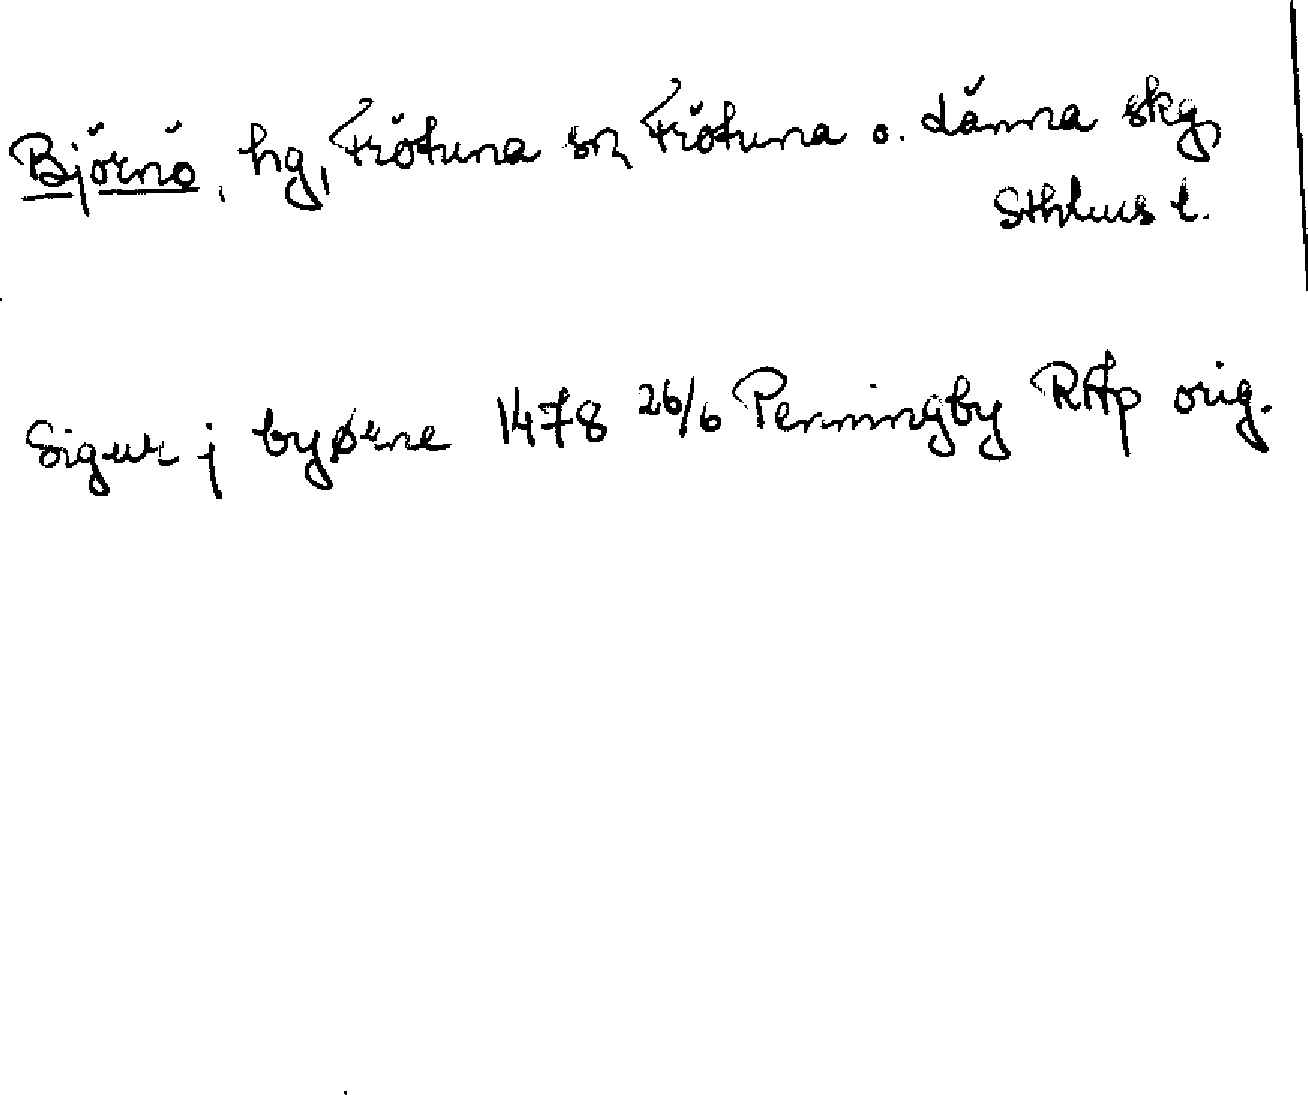 Björnö, hg, Frötuna sn, Frötuna o. Länna skg,
Sthlms l.
Sigur j byørne 1478 26/6 Penningby RAp orig.